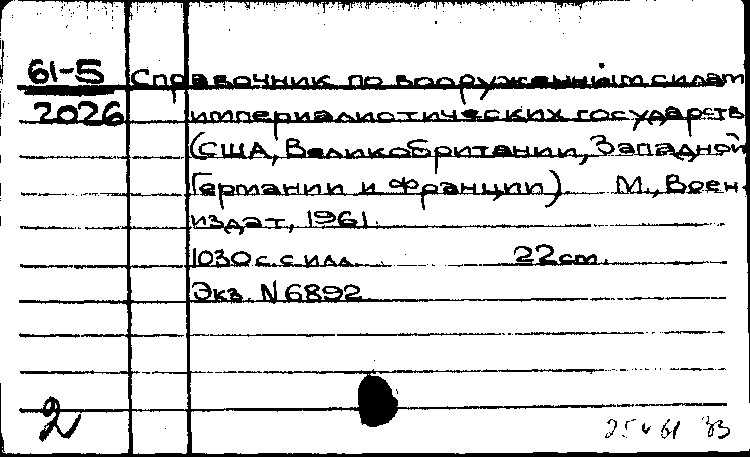 61-5
2026
Справочник по вооруженным силам
империалистических государств
(США, Великобритании, Западной
Германии и Франции) М., Воен-
издат, 1961.
1030 с. с илл. 22 cm.
Экз. N 6892
2